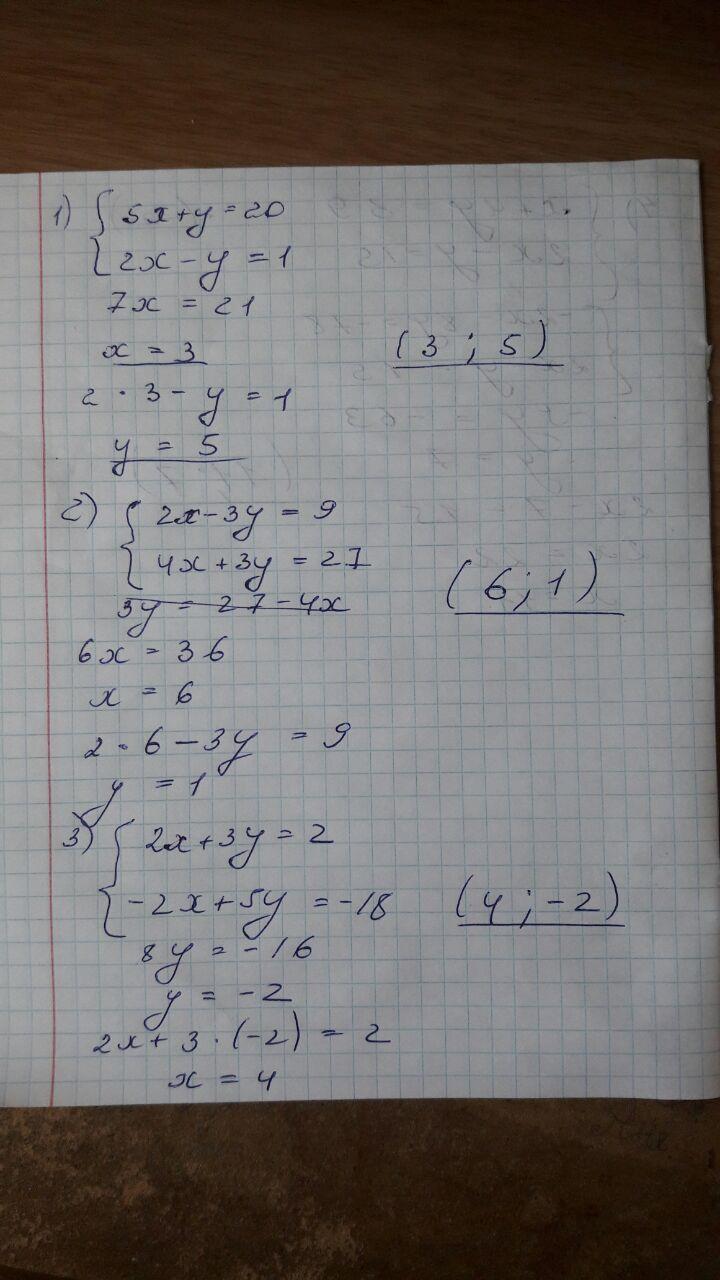 1) { 5x+y=20
2x-y=1
7x=21
x=3
(3;5)
2·3-y=1
y=5
2) { 2x-3y=9
4x+3y=27
3y=27-4x
(6;1)
6x=36
x=6
2·6-3y=9
y=1
3) { 2x+3y=2
-2x+5y=-18
(4;-2)
8y=-16
y=-2
2x+3·(-2)=2
x=4